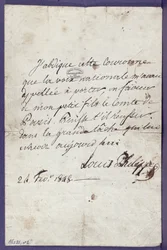 J'abdique cette Couronne
que la voix nationale m'avait
appelé à porter, en faveur
de mon petit fils le Comte de
Paris. Puisse-t-il réussir
dans la grande tâche qui lui
échoit aujourd'hui.
Louis Philippe
24 Fevr. 1848